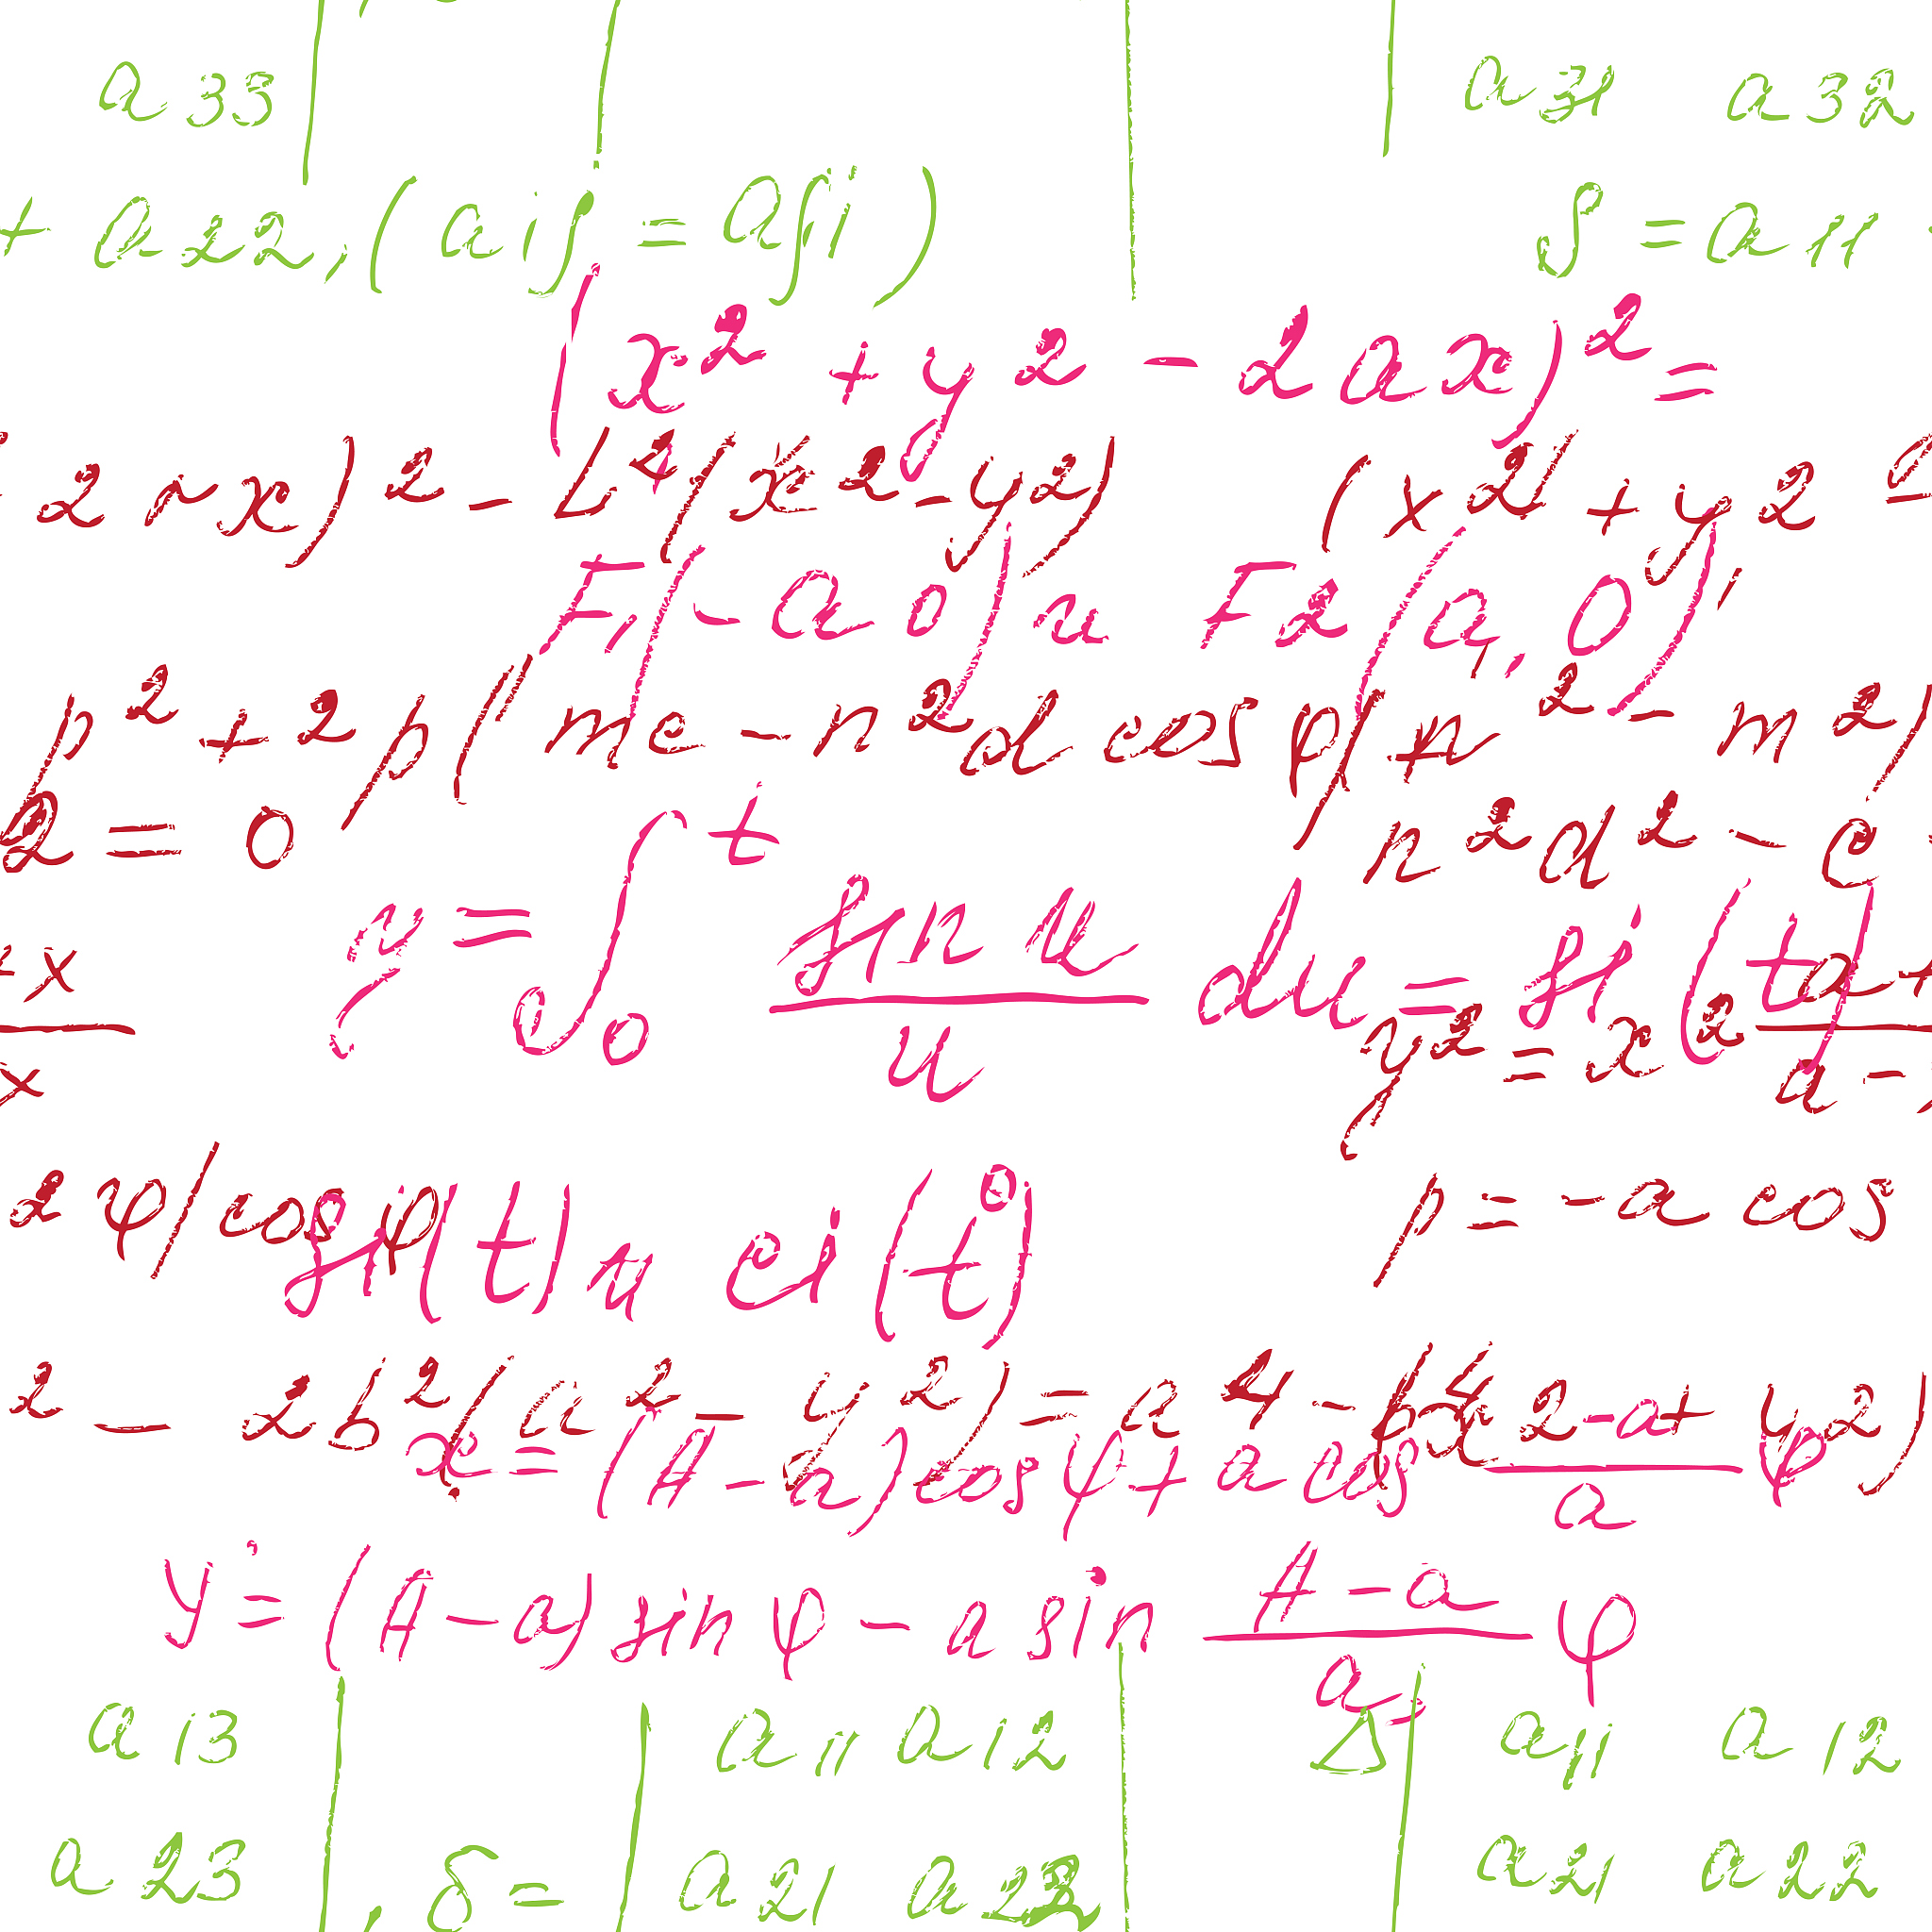 a 33 a 31 a 32
+ a 22, (a ij = a ji) S = a 11
(x² + y² - 2ax)² =
2ax)² - b⁴(x² - y²) (x² + y²
F1(-a 0) и F2(a, 0),
p² + 2p(mc - n²d cos φ)(n² - m²)
2 = 0 n²d² - c
y = ∫₀ᵗ sin u / u du = si (t)
y² = x²
2 φ) cos φ p = -a cos
si (t) и ci (t)
2 - 2b²(x² - y²) = a⁴ - b⁴ (x² + y²)
x = (A - a) cos φ + a cos (A - a)/a φ
y = (A - a) sin φ - a sin (A - a)/a φ
a 13 a 11 a 12 Δ a 11 a 12
a 23, δ = a 21 a 22 a 21 a 22